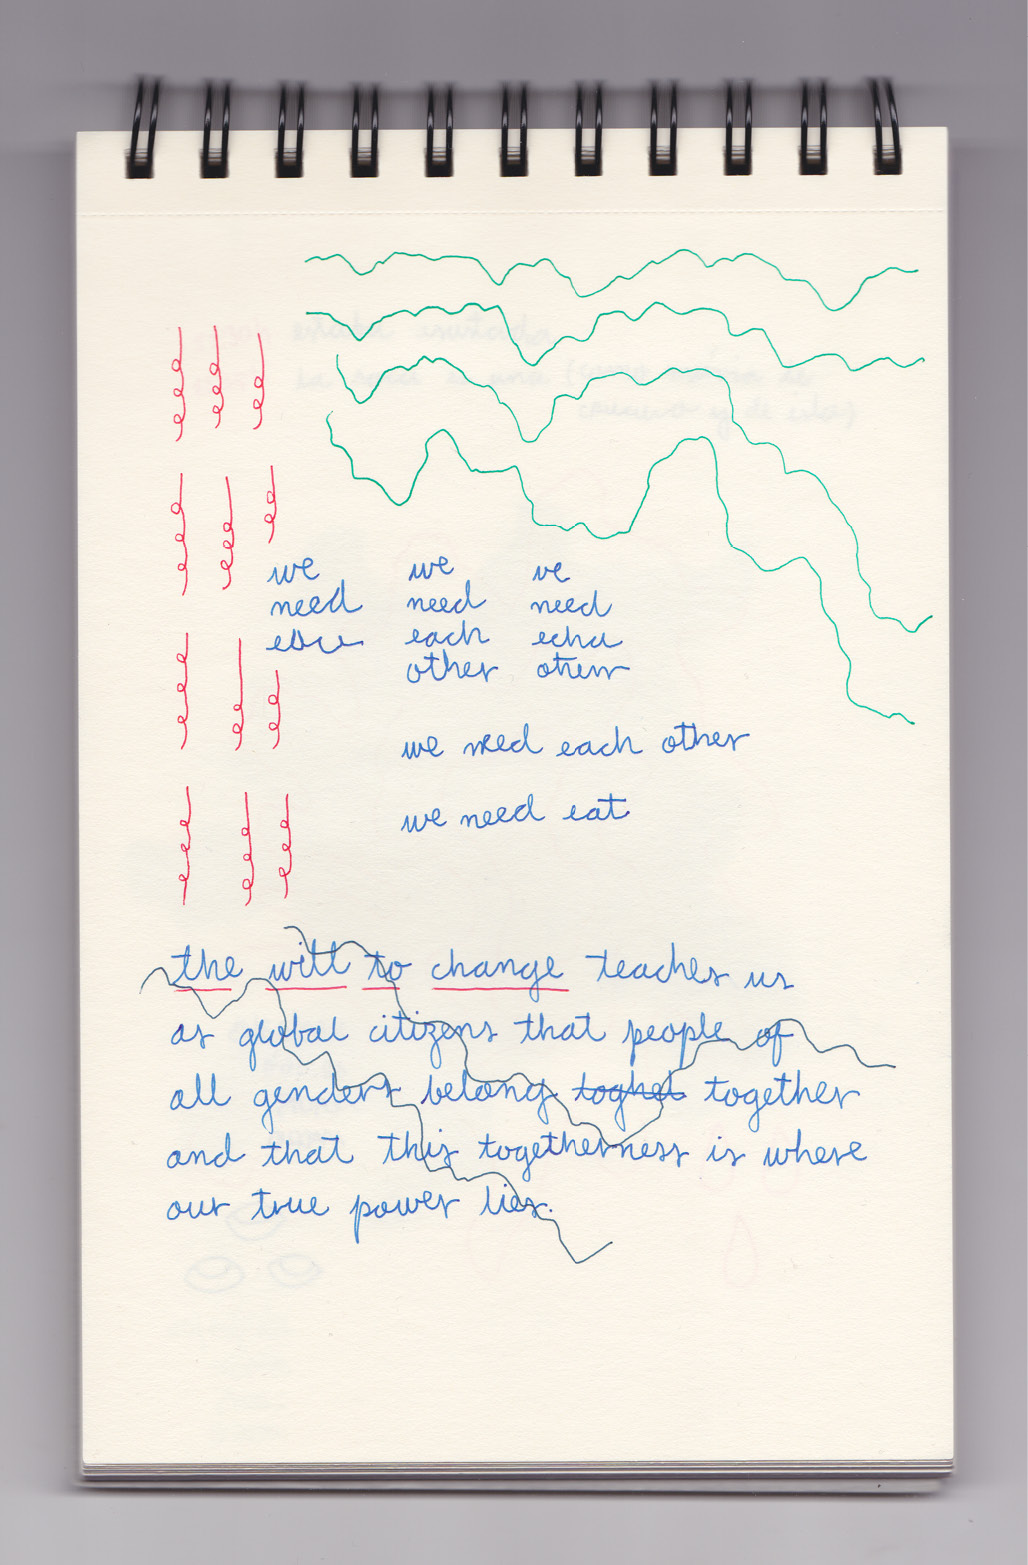 we
need
we
need
each
other
we
need
echa
we need each other
we need eat
the will to change teaches us
as global citizens that people of
all genders belong toghet together
and that this togetherness is where
our true power lies.